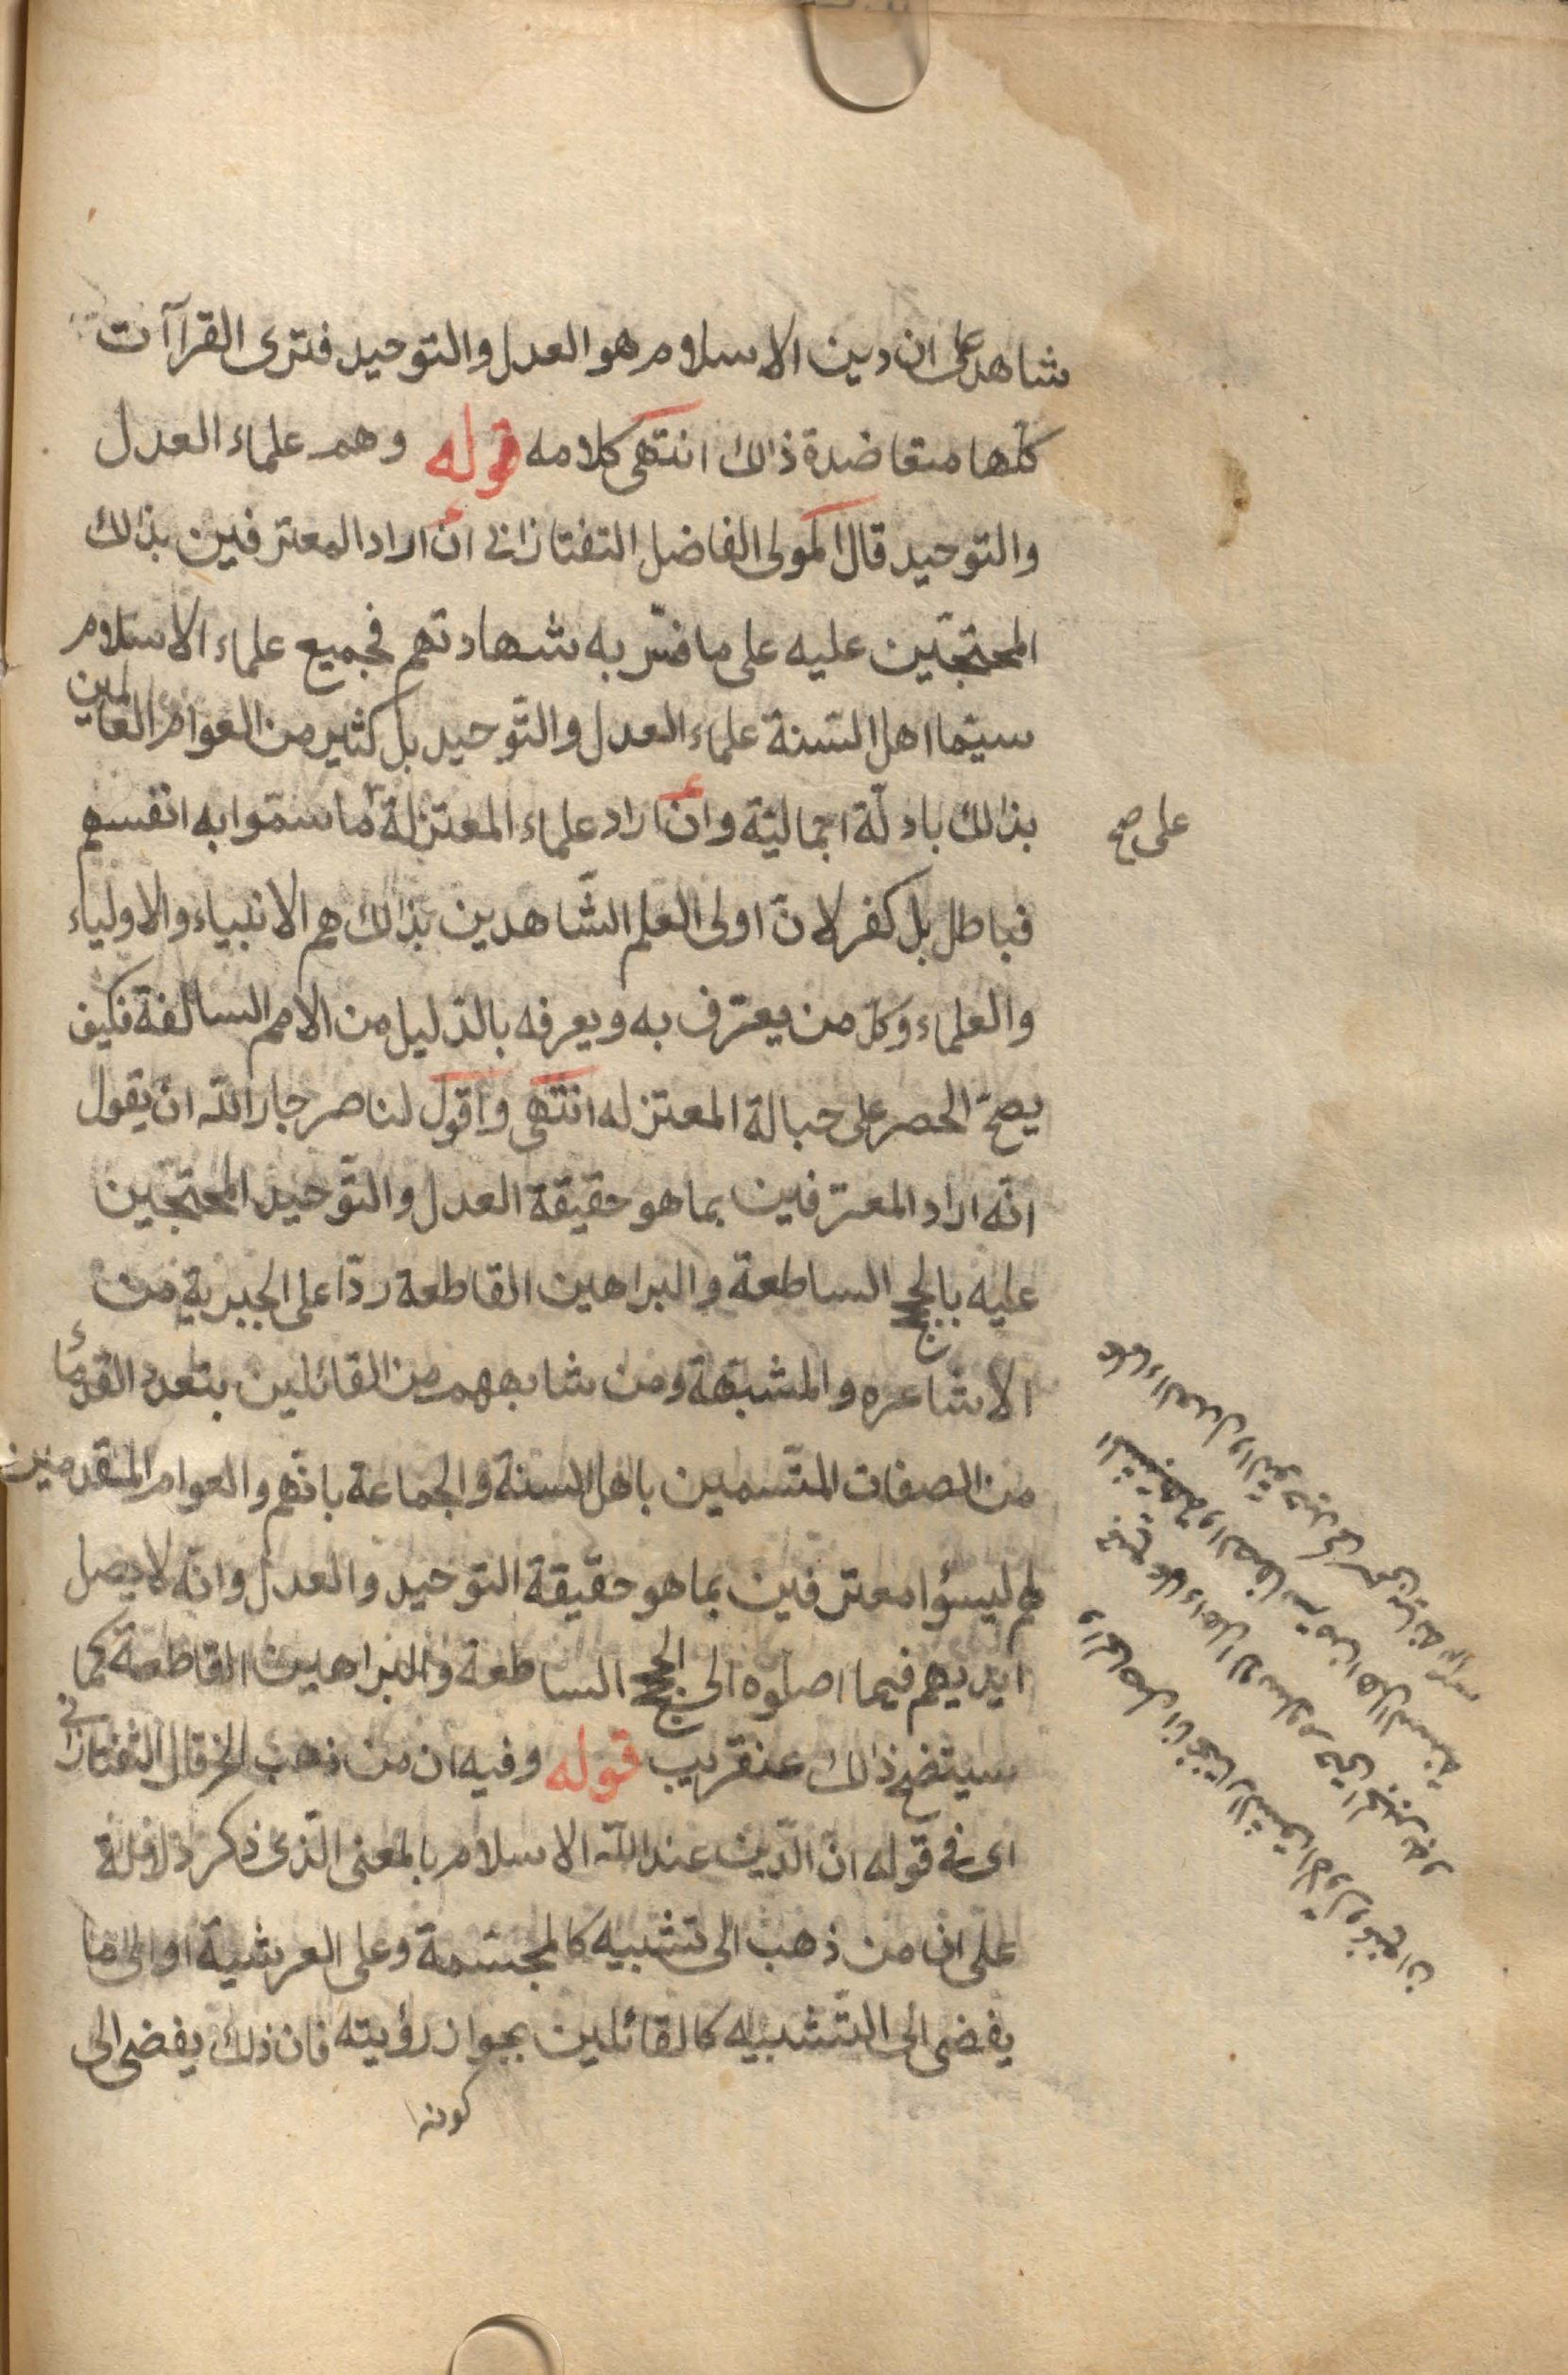 شاهد على ان دين الاسلام هو العدل والتوحيد فترى القراآت
كلّها متعاضدة ذالك انتهى كلامه قوله وهم علماء العدل
والتوحيد قال المولى الفاضل التفتازانى ان اراد المعترفين بذالك
المحتجّين عليه على ما فسّر به شهادتهم فجميع علماء الاسلام
سيّما اهل السّنة علماء العدل والتّوحيد بل كثير من العوام العالمين
بذالك بادلّة اجماليّة وان اراد علماء المعتزلة ما سمّوا به انفسهم
على صح
فباطل بل كفر لانّ اولى العلم الشّاهدين بذالك هم الانبياء والاولياء
والعلماء وكلّ من يعترف به ويعرفه بالدّليل من الامم السالفة فكيف
يصحّ الحصر على حبالة المعتزله انتهى واقول لناصر جار الله ان يقول
انّه اراد المعترفين بما هو حقيقة العدل والتّوحيد المحتجّين
عليه بالحجج الساطعة والبراهين القاطعة ردّا على الجبرية من
الاشاعره والمشبّهة ومن شابههم من القائلين بتعدد القدماء
من الصفات المتّسمين باهل السنة والجماعة بانّهم والعوام المتقدمين
لهم ليسؤا معترفين بما هو حقيقة التوحيد والعدل وانّه لا يصل
ايديهم فيما اصلوه الى الحجج الساطعة والبراهين القاطعة كما
سيتضح ذالك عنقريب قوله وفيه ان من ذهب الخ قال التفتازانى
اى فى قوله انّ الدّين عند الله الاسلام بالمعنى الّذى ذكر دلالة
على ان من ذهب الى تشبيه كالمجسّمة وعلى العرشية او الى ما
يفضى الى التّشبيه كالقائلين بجواز رؤيته فان ذلك يفضى الى
كونه
والحاصل انا نختار الشّق الاوّل ونمنع ان
جميع علماء اهل الاسلام حتى المجبرة و
المشبهة والصفاتيّة من اهل السنة
علماء العدل والتوحيد